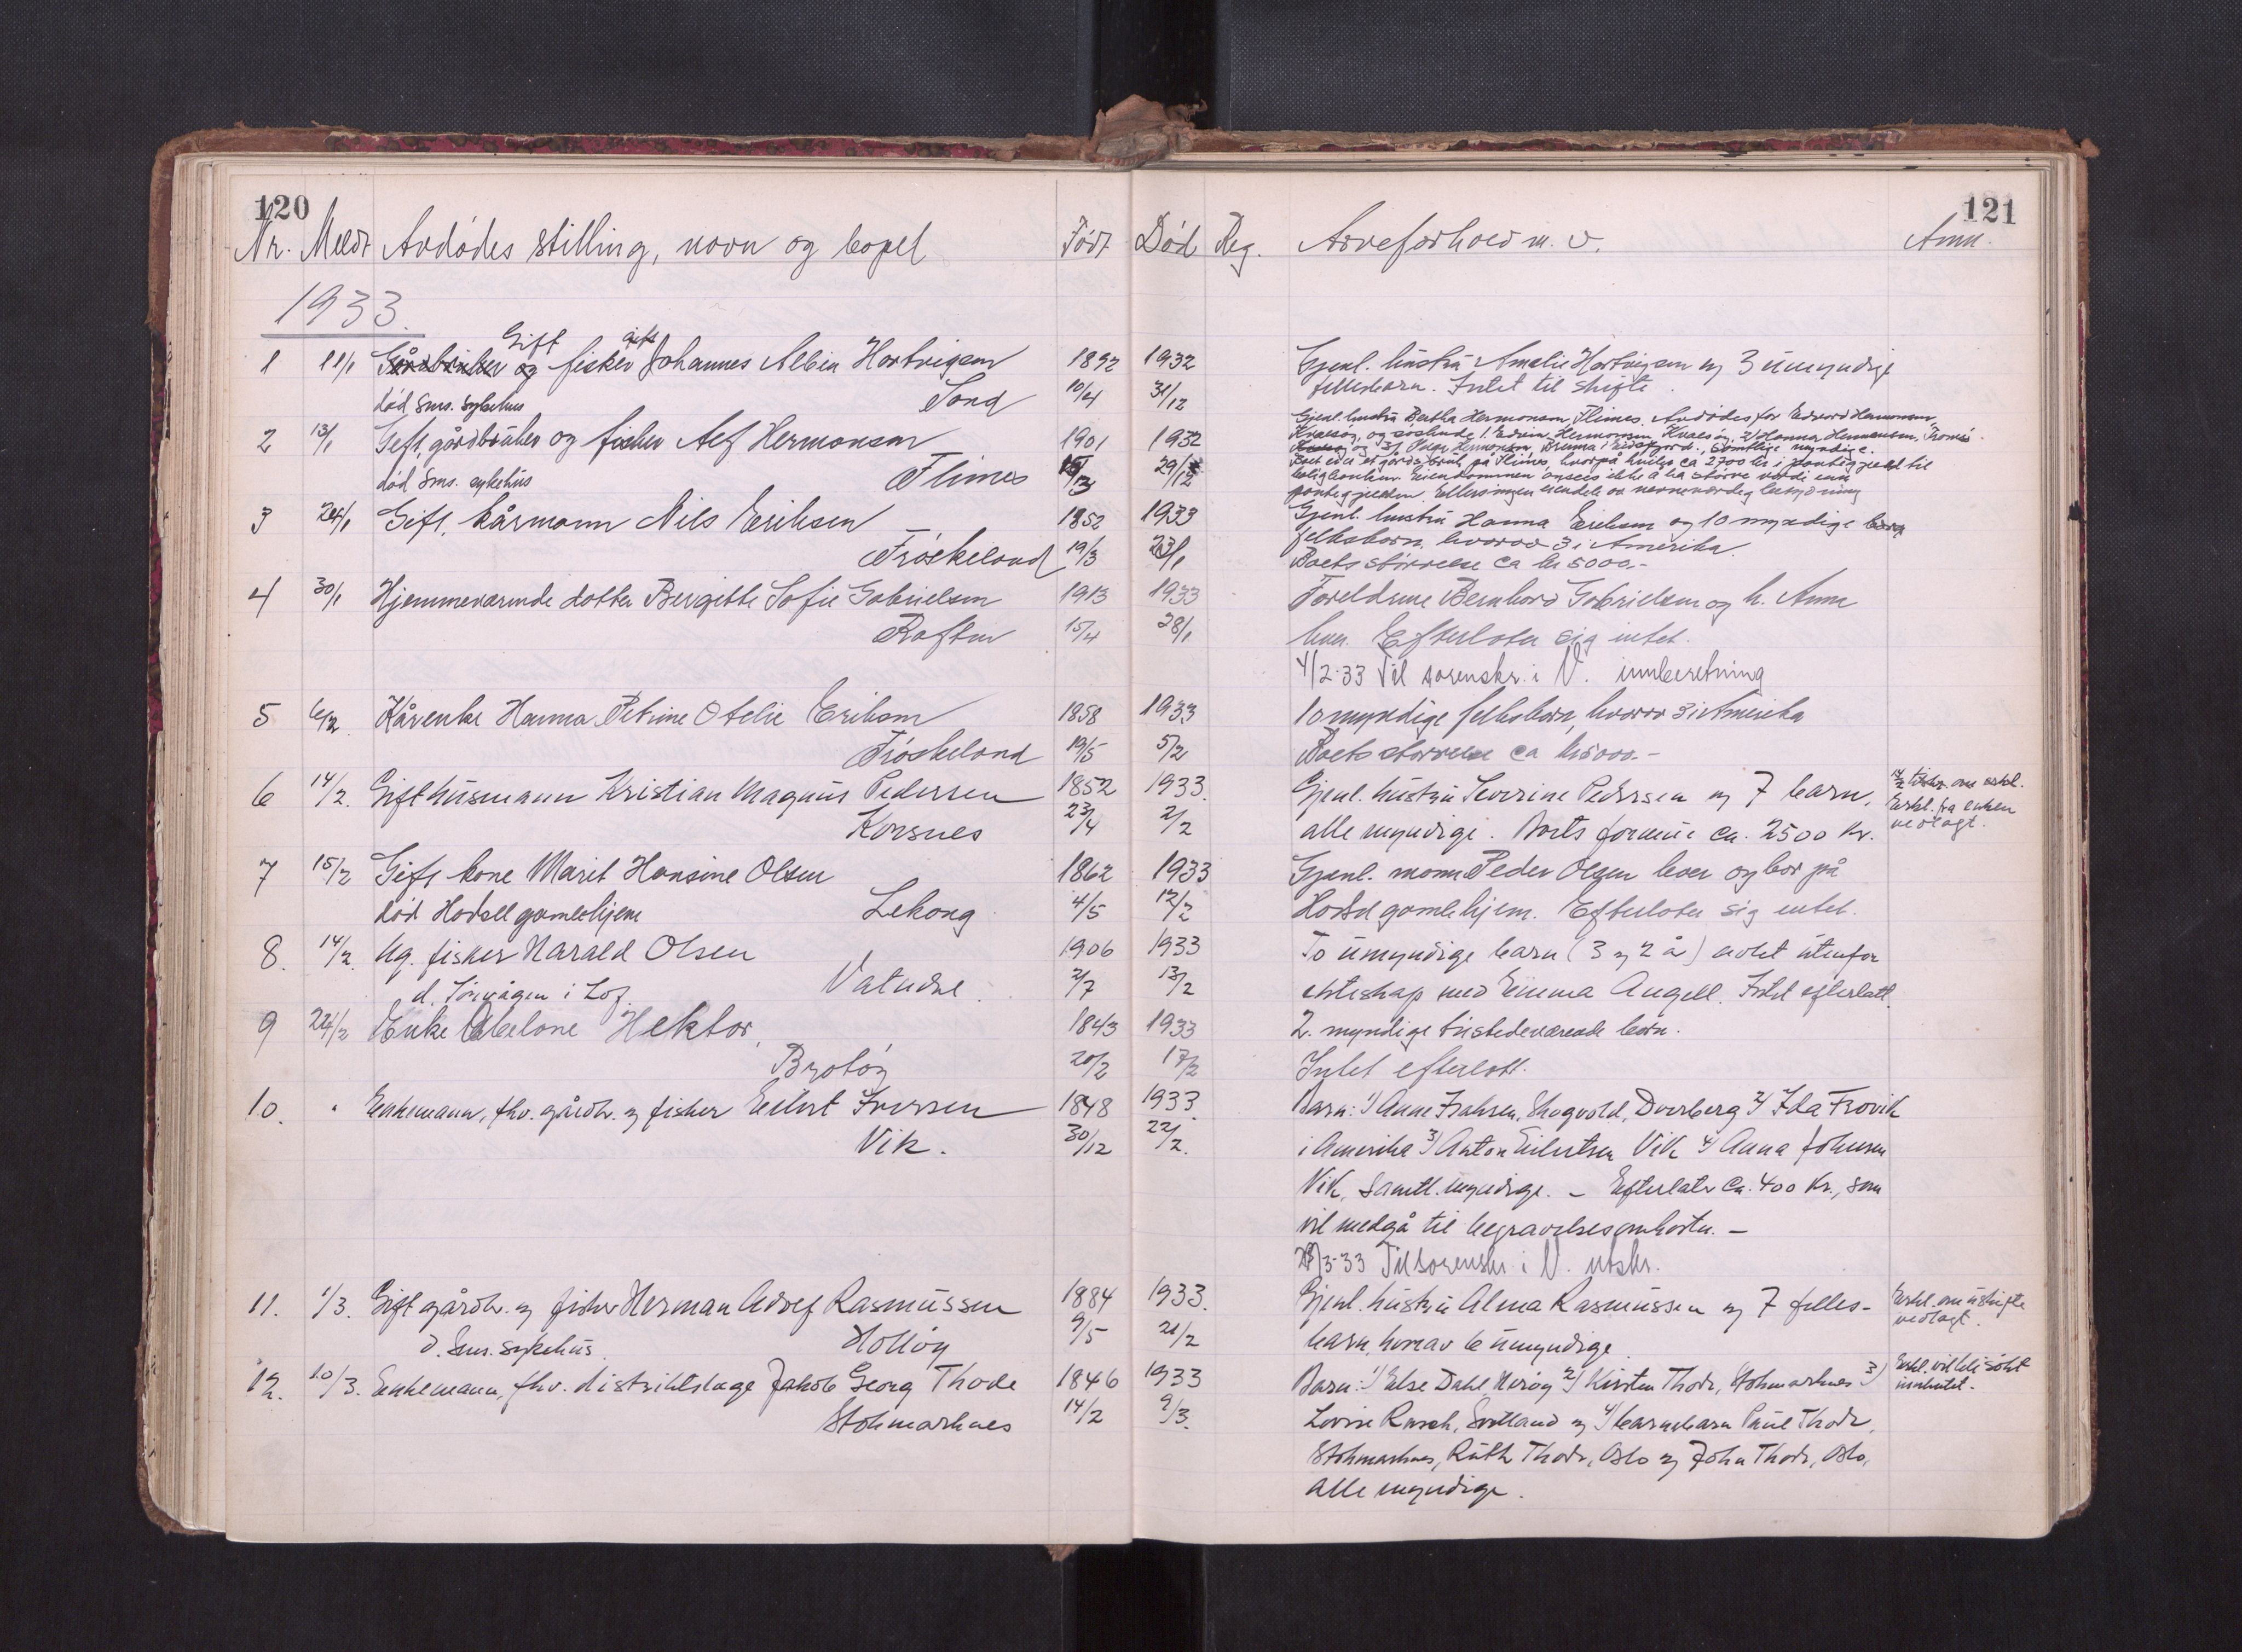 120
Nr. Meldt Avdødes stilling, navn og bopel Født Død Reg. Arveforhold m. v. Anm.
121
1933.
1 11/1 Gårdbruker og Gift fisker Johannes Albin Hartvigsen 1892 1932 Gjenl. hustru Amalie Hartvigsen og 3 umyndige
død Sms. sykehus Sand 10/4 31/12 fellesbarn. Intet til skifte.
2 13/1 Gift, gårdbruker og fisker Alf Hermansen 1901 1932 Gjenl. hustru Bertha Hermansen, Flimes. Avdødes far Edvard Hermansen,
Kvalsøy, og søskende 1. Edvin Hermansen Kvalsøy, 2/ Hanna Hermansen, Tromsø
og 3/ Hermansen, i Eidsfjord., samtlige myndige.
død Sms. sykehus Flimes 29/12 Boet eier et gårdsbruk på Flimes, hvorpå hviler ca 2700 kr i pantegjeld til
Eiendommen ansees ikke å ha større verdi enn
pantegjelden. Ellers ingen eiendele av nevneverdig betydning
3 24/1 Gift, kårmann Nils Eriksen 1852 1933 Gjenl. hustru Hanna Eriksen og 10 myndige barn
Frøskeland 19/3 23/1 fellesbarn, hvorav 3 i Amerika.
Boets størrelse ca kr 5000.-
4 30/1 Hjemmeværende datter Bergitte Sofie Gabrielsen 1913 1933 Foreldrene Bernhard Gabrielsen og h. Anna
Raften 15/4 28/1 lever. Efterlater sig intet.
4/2-33 Til sorenskr. i V. innberetning
5 6/2 Kårenke Hanna Petrine Otelie Eriksen 1858 1933 10 myndige fellesbarn, hvorav 3 i Amerika
Frøskeland 19/5 5/2 Boets størrelse ca kr 5000.-
6 14/2. Gift husmann Kristian Magnus Pedersen 1852 1933. Gjenl. hustru Severine Pedersen og 7 barn, om erkl.
Korsnes 23/4 2/2 alle myndige. Boets formue ca. 2500 kr. Erkl. fra enken
vedlagt.
7 15/2 Gift kone Marit Hansine Olsen 1862 1933 Gjenl. mann Peder Olsen lever og bor på
død Hadsel gamlehjem Lekang 4/5 12/2 Hadsel gamlehjem. Efterlater sig intet.
8. 14/2. Ug. fisker Harald Olsen 1906 1933 To umyndige barn (3 og 2 år) avlet utenfor
d. Sørvågen i Lof. Vatndal. 2/7 13/2 ekteskap med Emma Angell. Intet efterlatt.
9 24/2 Enke Abelone Hektor, 1843 1933 2. myndige tilstedeværende barn.
Brotøy 20/2 17/2 Intet efterlatt.
10. " Enkemann, fhv. gårdbr. og fisker Eilert Iversen 1848 1933. Barn: 1/ Anne Isaksen, Skogvold, Dverberg 2/ Ida Frovik
Vik. 30/12 22/2. i Amerika 3/ Anton Eilertsen Vik 4/ Anna Johnsen
Vik, samtl. myndige. – Efterlater ca. 400 kr., som
vil medgå til begravelsesomkostn. –
3-33 Til sorenskr. i V. utskr.
11. 1/3. Gift gårdbr. og fisker Herman Adolf Rasmussen 1884 1933. Gjenl. hustru Alma Rasmussen og 7 felles- Erkl. om uskifte
d. Sms. sykehus. Holløy 9/5 21/2 barn, hvorav 6 umyndige. vedlagt.
12. 10/3. Enkemann, fhv. distriktslæge Jakob Georg Thode 1846 1933 Barn: 1/ Else Dahl, Herøy 2/ Kirsten Thode, Stokmarknes 3/ Erkl. vil bli søkt
Stokmarknes 14/2 9/3. Lovise Rasch, Sortland og 4/ barnebarn Paul Thode, innhentet.
Stokmarknes, Ruth Thode, Oslo og John Thode, Oslo,
alle myndige.